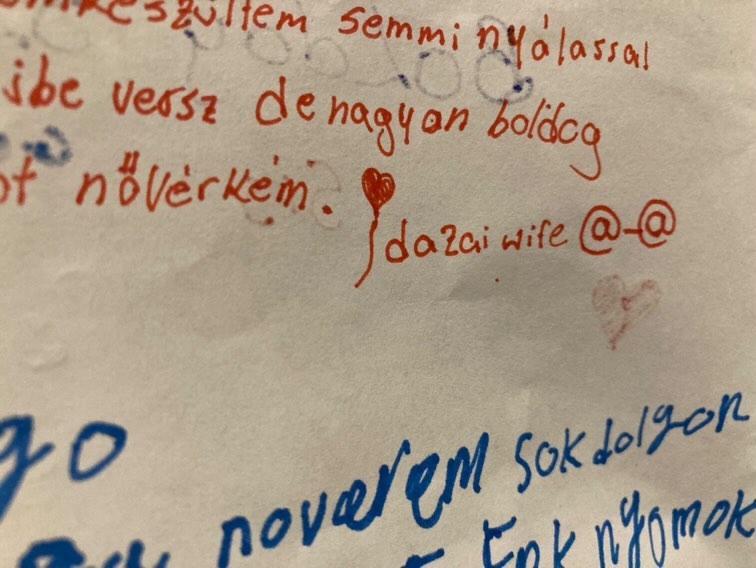 semmi nyálassal
versz de nagyon boldog
nővérkém.
dazai wife @-@
go
noverem sok dolgon
nyomok